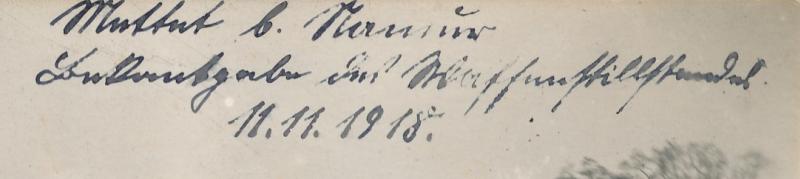 Mettet b. Namur
Bekantgabe des Waffenstillstandes.
11.11.1918.